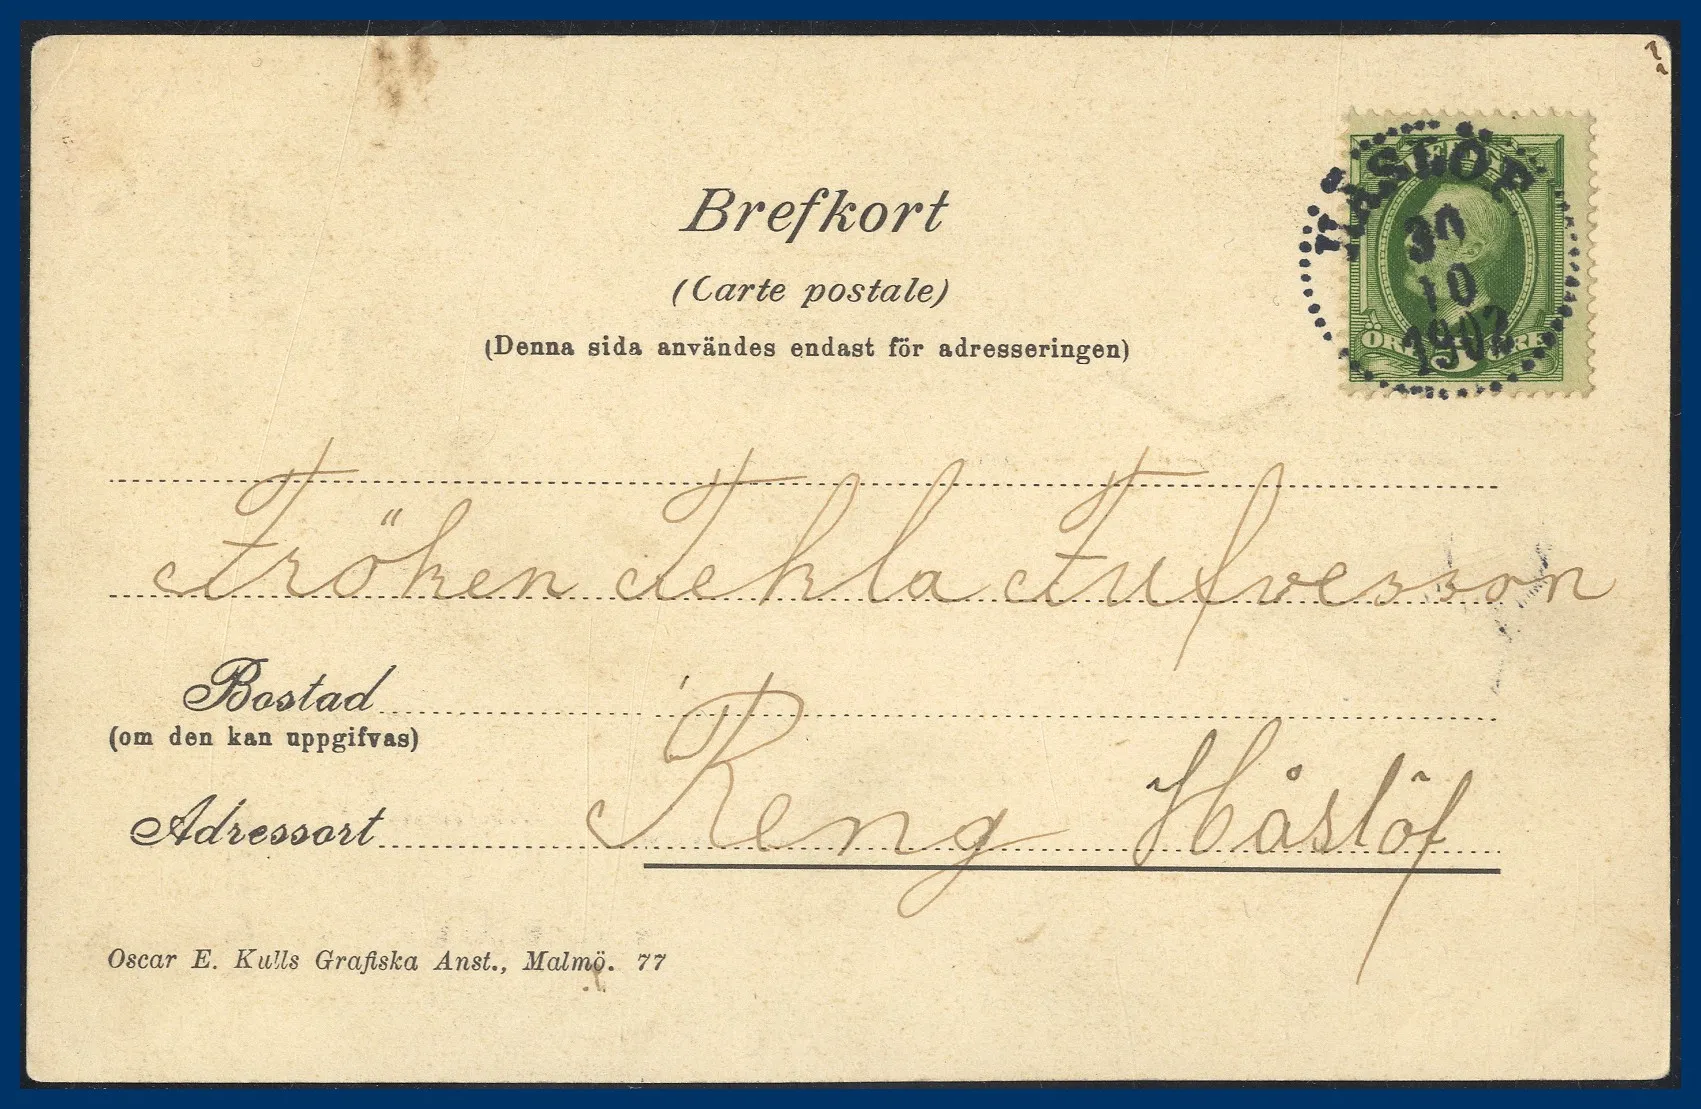 Brefkort
(Carte postale)
(Denna sida användes endast för adresseringen)
HÅSLÖF
30
10
1902
ÖRE 5 ÖRE
Fröken Tekla Tufvesson
Bostad
(om den kan uppgifvas)
Adressort Reng Håslöf
Oscar E. Kulls Grafiska Anst., Malmö. 77